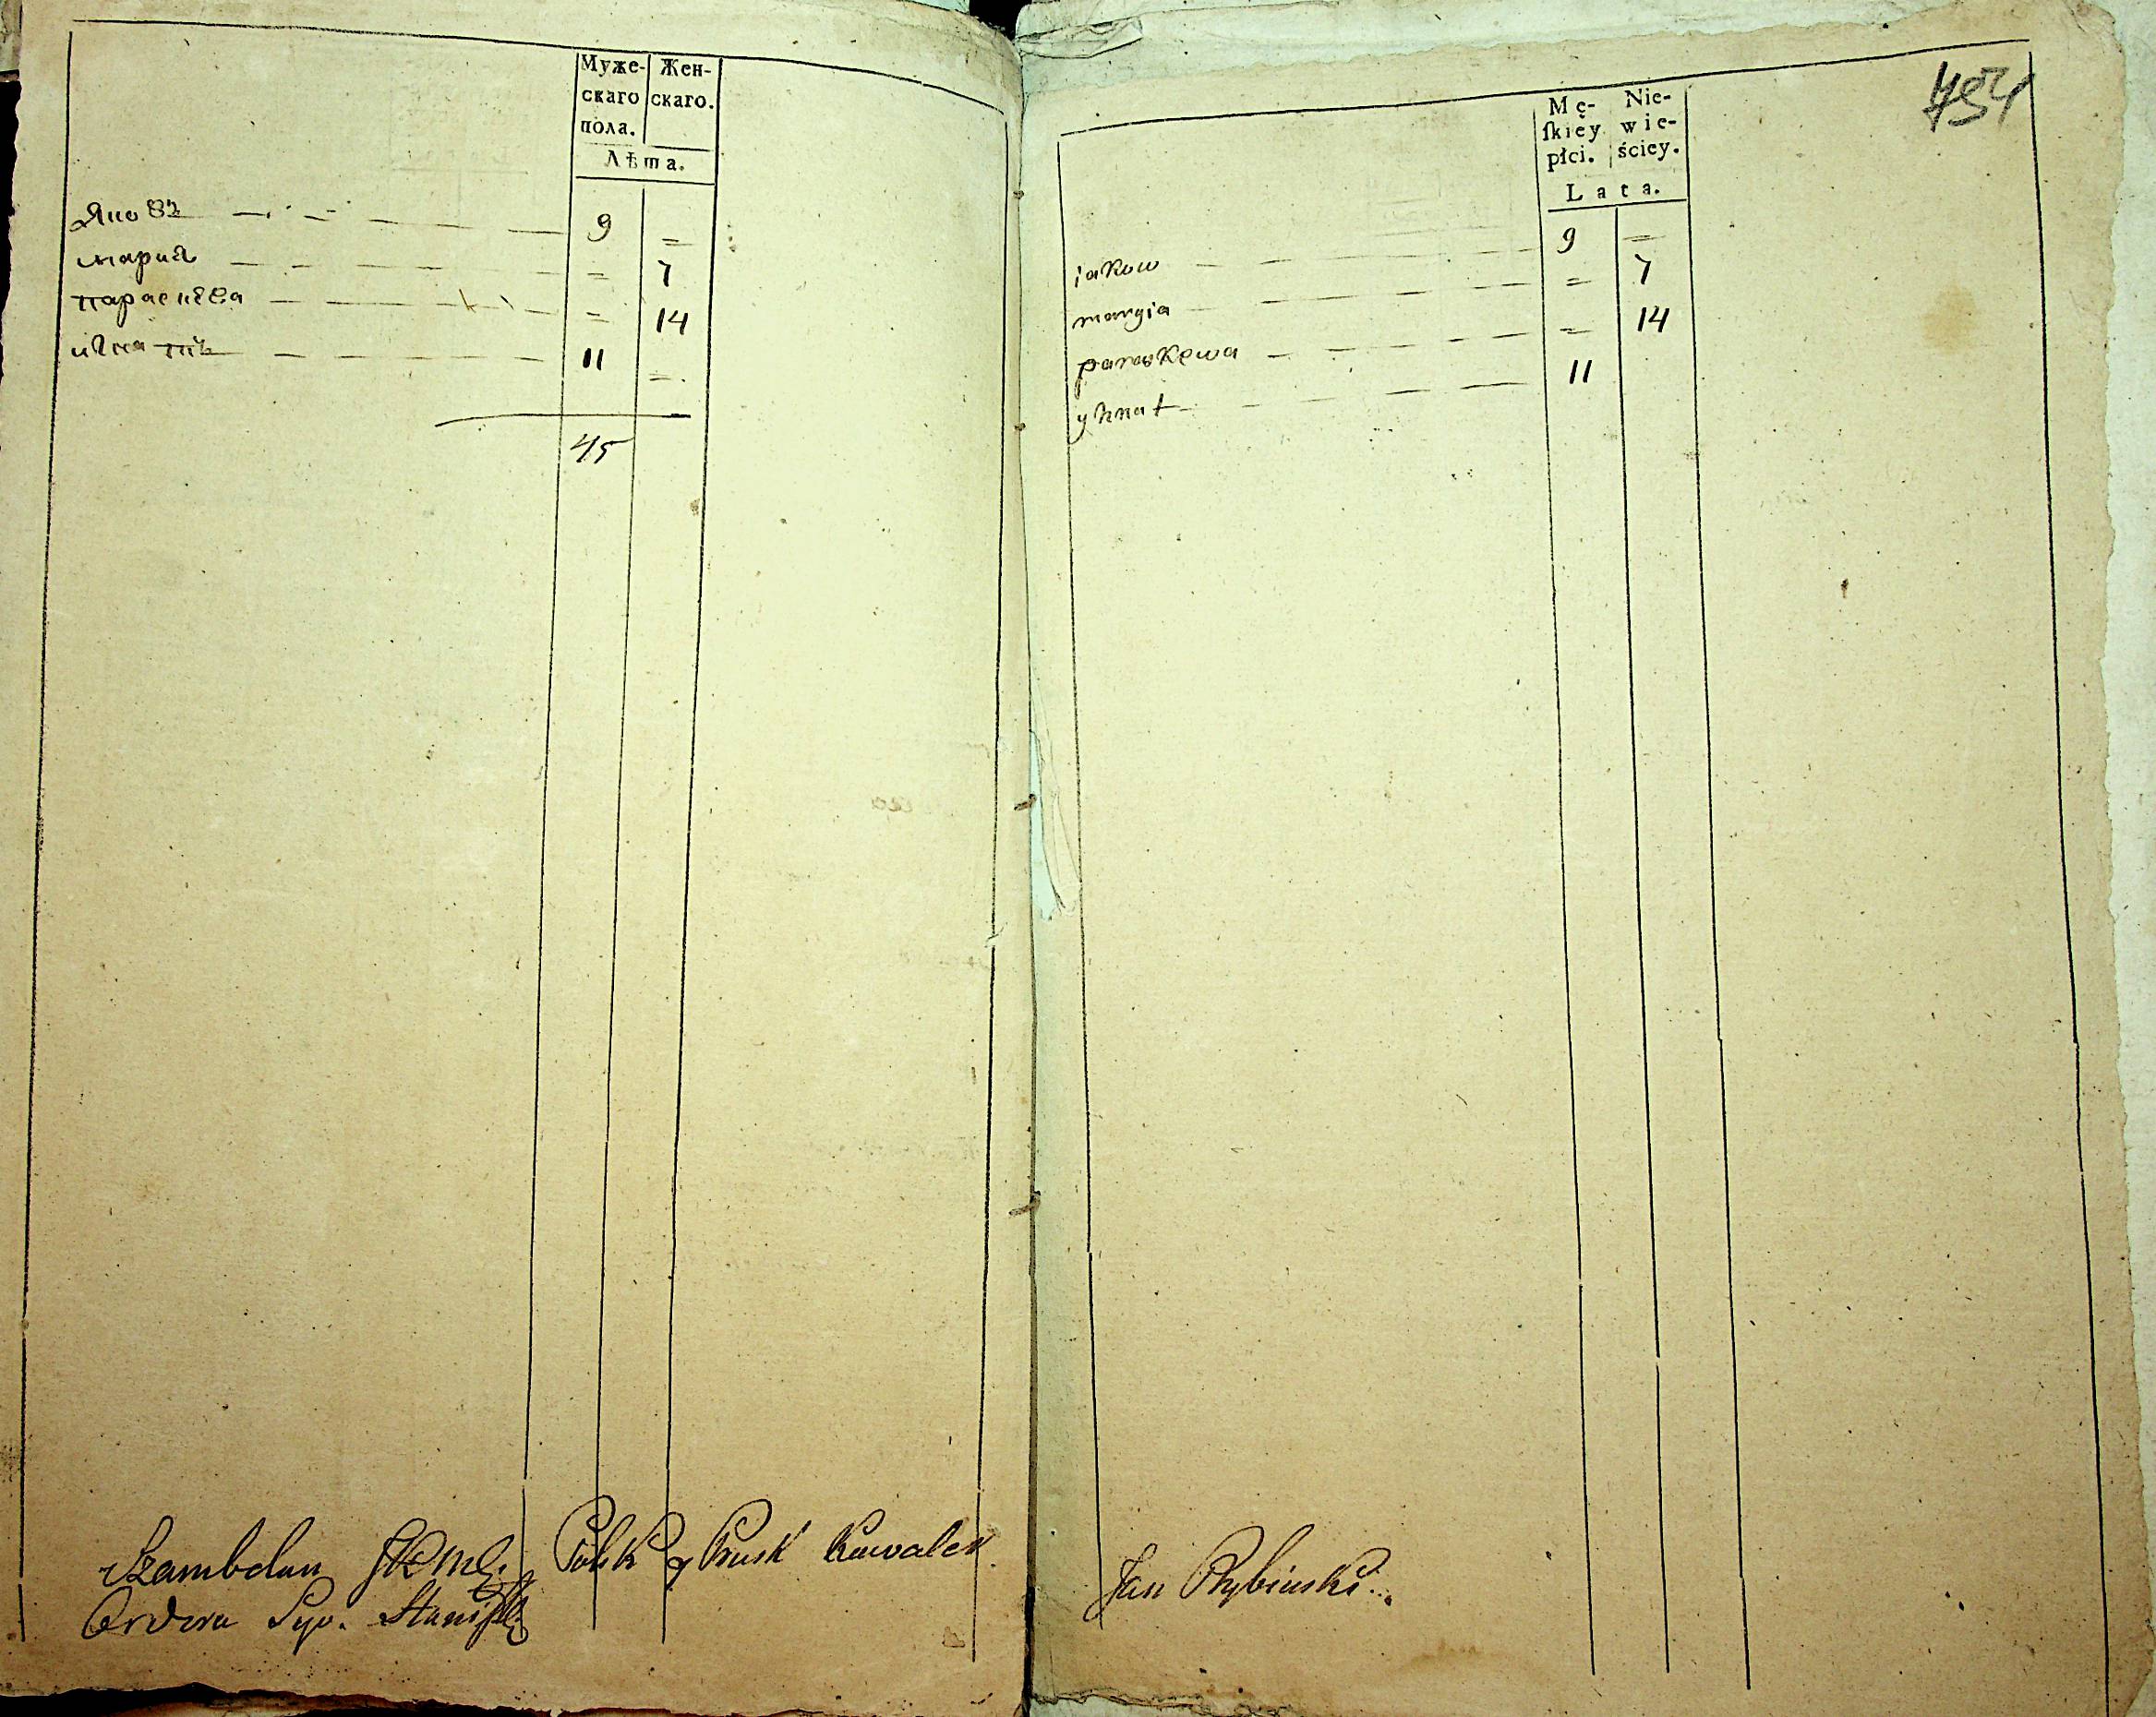 Муже-
скаго
пола.
Жен-
скаго.
Лѣта.
Яковъ — 9 =
мария — = 7
параскева — = 14
игнатъ — 11 =
45
Szambelan
Polsk y Prusk Kawaler
Ordera Syo. Stanisł
751
Mę-
ſkiey
płci.
Nie-
wie-
ściey.
Lata.
iakow — 9 =
maryia — = 7
paraskewa — = 14
yhnat — 11
Jan Rybinski